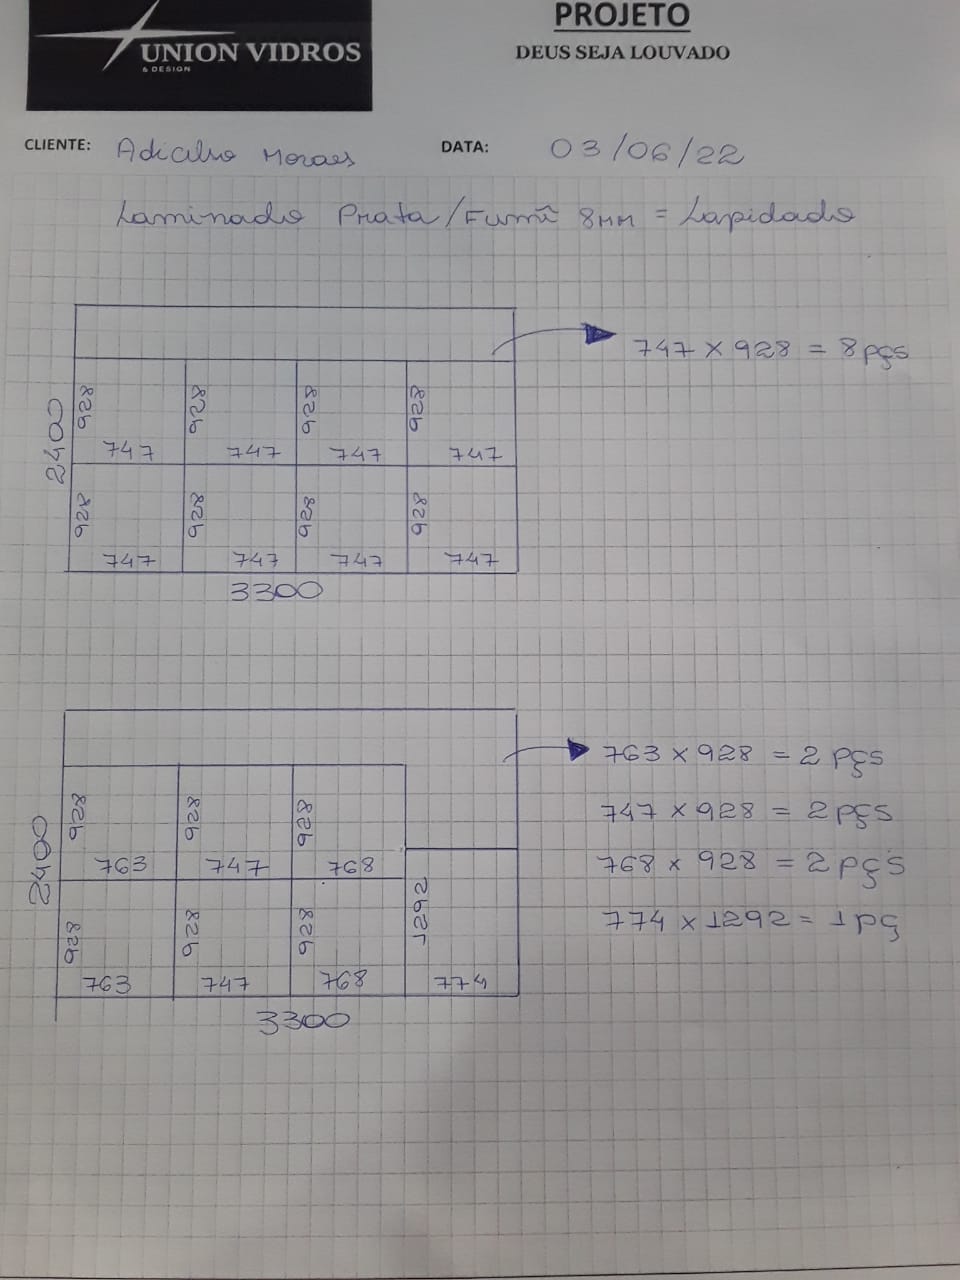 UNION VIDROS
& DESIGN
PROJETO
DEUS SEJA LOUVADO
CLIENTE: Moraes
DATA: 03/06/22
Laminado Prata/Fumê 8mm = Lapidado
747 x 928 = 8 pçs
2400
928 928 928 928
747 747 747 747
928 928 928 928
747 747 747 747
3300
763 x 928 = 2 pçs
747 x 928 = 2 pçs
768 x 928 = 2 pçs
774 x 1292 = 1 pç
2400
928 928 928
763 747 768
928 928 928 1292
763 747 768 774
3300